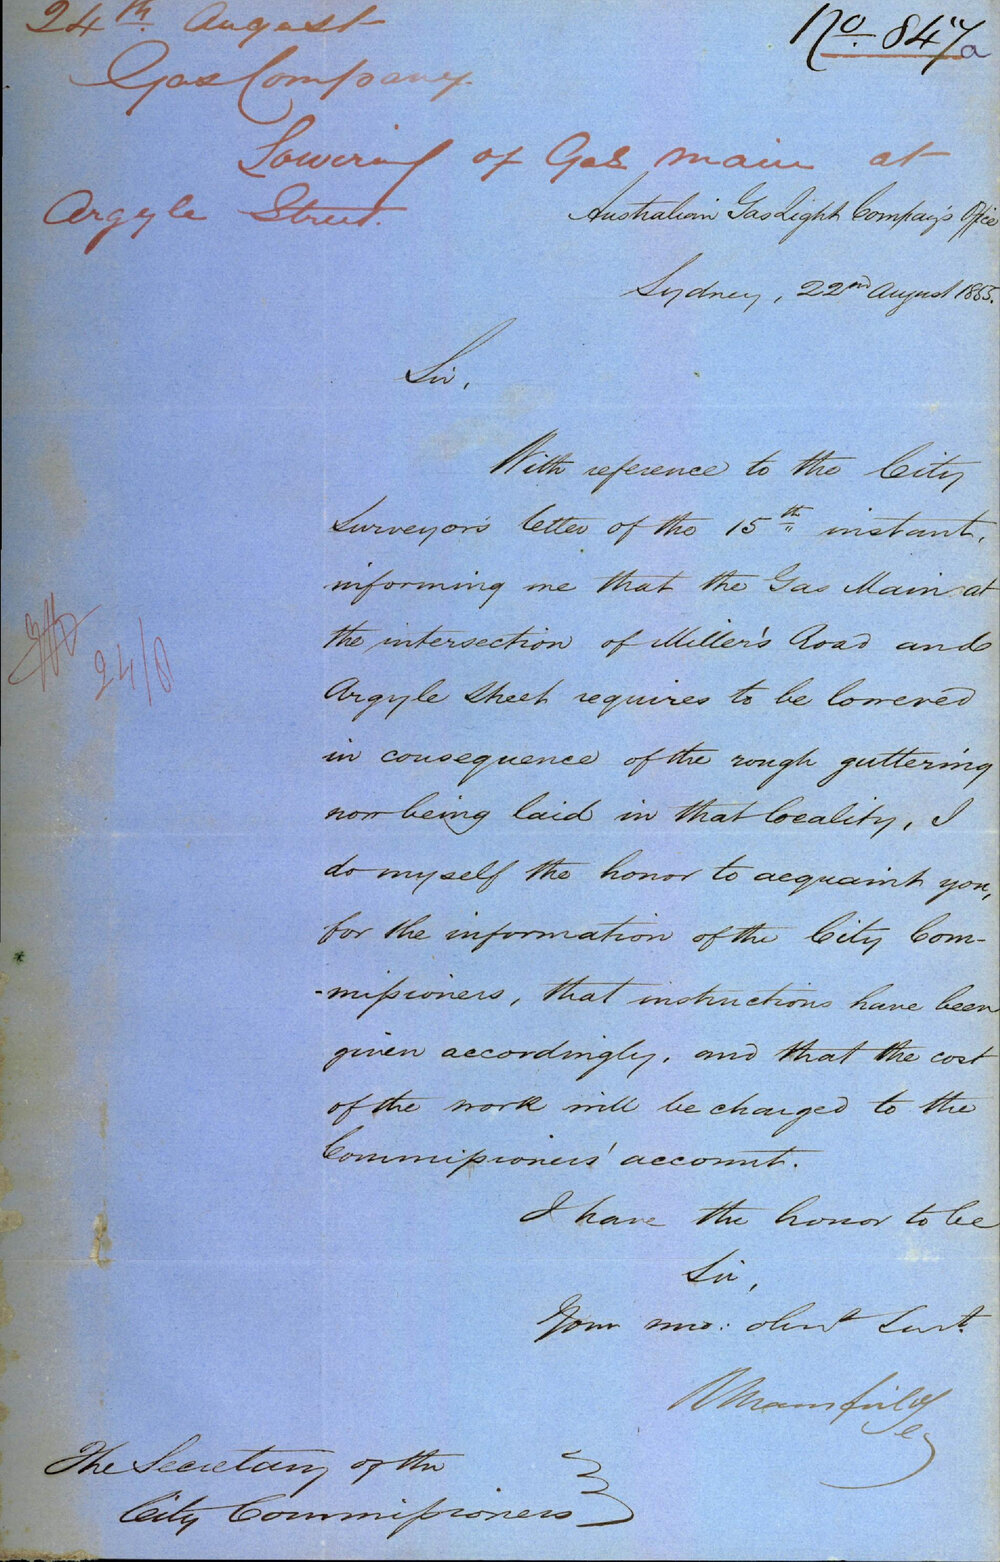 24th. August
No. 847a
Gas Company.
Lowering of Gas main at
Argyle Street.
Australian Gas Light Company's Office
Sydney, 22nd August 1855.
Sir,
With reference to the City
Surveyor's letter of the 15th instant,
informing me that the Gas Main at
the intersection of Miller's Road and
Argyle Street requires to be lowered
in consequence of the rough guttering
now being laid in that locality, I
do myself the honor to acquaint you,
for the information of the City Com-
-missioners, that instructions have been
given accordingly, and that the cost
of the work will be charged to the
Commissioners' account.
I have the honor to be
Sir,
Your mo: obedt Servt.
R Mansfield
Sey
The Secretary of the
City Commissioners
24/8